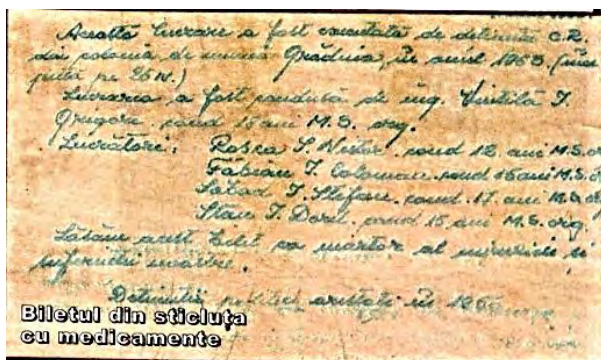 Această lucrare a fost executată de deținuții C.R.
din colonia de muncă Grădina, în anul 1963. (înce
pută pe 26 IV.)
Lucrarea a fost condusă de ing. Vintilă I.
Grigore cond 15 ani M.S. org.
Lucrători: Roșca P. Nistor. cond 12 ani M.S. or
Fabian I. Coloman. cond 16 ani M.S. o
Sabad I. Ștefan. cond. 17. ani M.S. o
Stan I. Dorel. cond 15 ani M.S. org.
Lăsăm acest bilet ca martor al muncii și
suferinței noastre.
Deținutii politici arestați în 19
Biletul din sticluța
cu medicamente